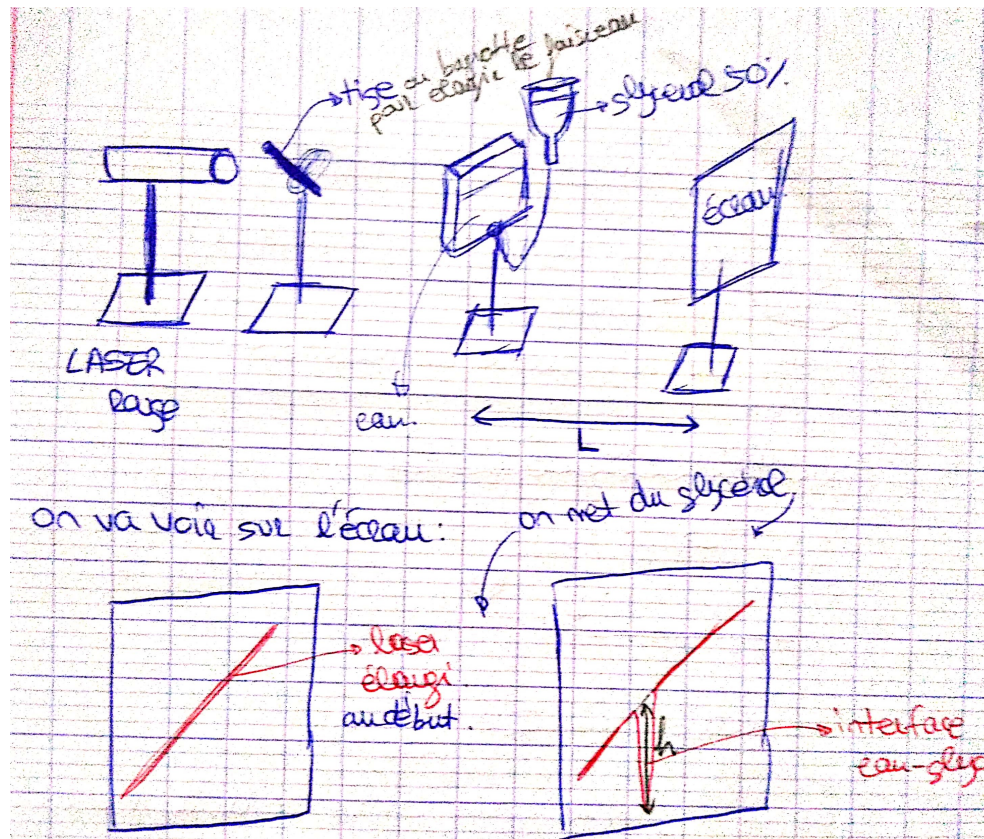 tige ou baguette
pour élargir le faisceau
glycérol 50%
ÉCRAN
LASER
Rouge
eau.
L
on va voir sur l'écran:
on met du glycérol
laser
élargi
au début.
h
interface
eau-glyc